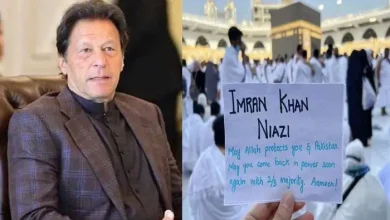 IMRAN KHAN
NIAZI
May Allah protects you & Pakistan.
May you come back in power soon
again with 2/3 majority. Aameen!